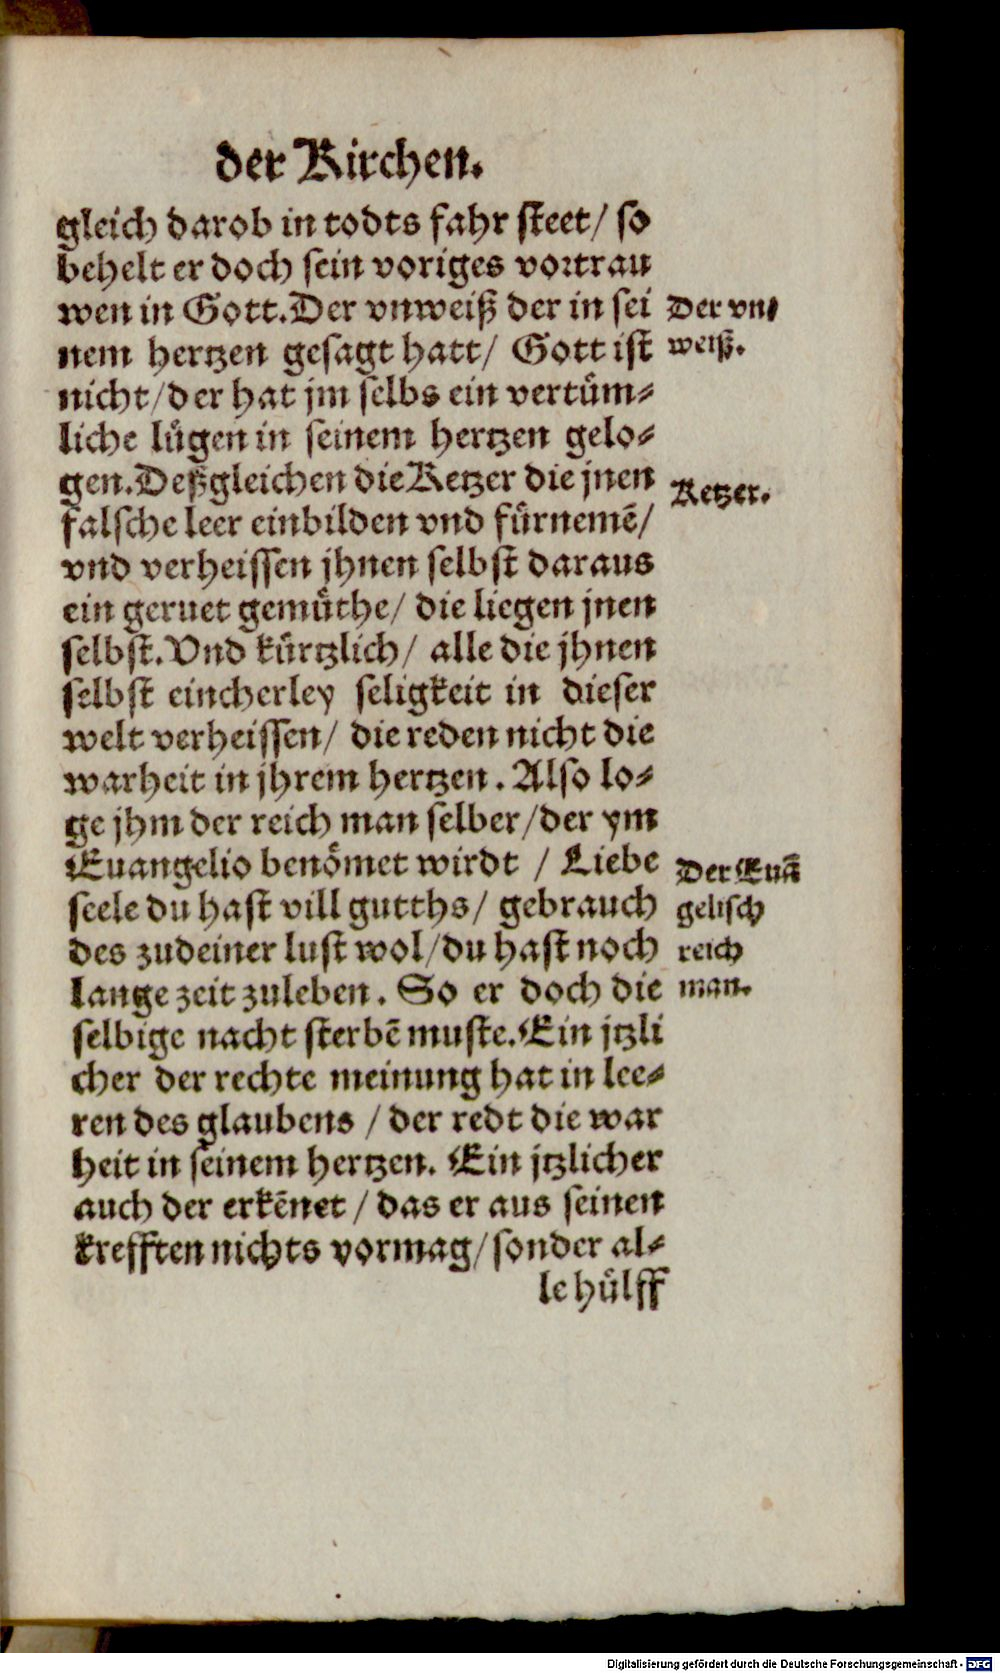 der Kirchen.
gleich darob in todts fahr steet/ so
behelt er doch sein voriges vortrau
wen in Gott. Der vnweiß der in sei
nem hertzen gesagt hatt/ Gott ist
nicht/der hat jm selbs ein vertům⸗
liche lůgen in seinem hertzen gelo⸗
gen. Deßgleichen die Ketzer die jnen
falsche leer einbilden vnd fůrnemē/
vnd verheissen jhnen selbst daraus
ein geruet gemůthe/ die liegen jnen
selbst. Vnd kůrtzlich/ alle die jhnen
selbst eincherley seligkeit in dieser
welt verheissen/ die reden nicht die
warheit in jhrem hertzen. Also lo⸗
ge jhm der reich man selber/der ym
Euangelio benömet wirdt / Liebe
seele du hast vill gutths/ gebrauch
des zudeiner lust wol/du hast noch
lange zeit zuleben. So er doch die
selbige nacht sterbē muste. Ein jtzli
cher der rechte meinung hat in lee⸗
ren des glaubens / der redt die war
heit in seinem hertzen. Ein jtzlicher
auch der erkēnet / das er aus seinen
krefften nichts vormag/sonder al⸗
le hůlff
Der vn⸗
weiß.
Ketzer.
Der Euā
gelisch
reich
man.
Digitalisierung gefördert durch die Deutsche Forschungsgemeinschaft - DFG